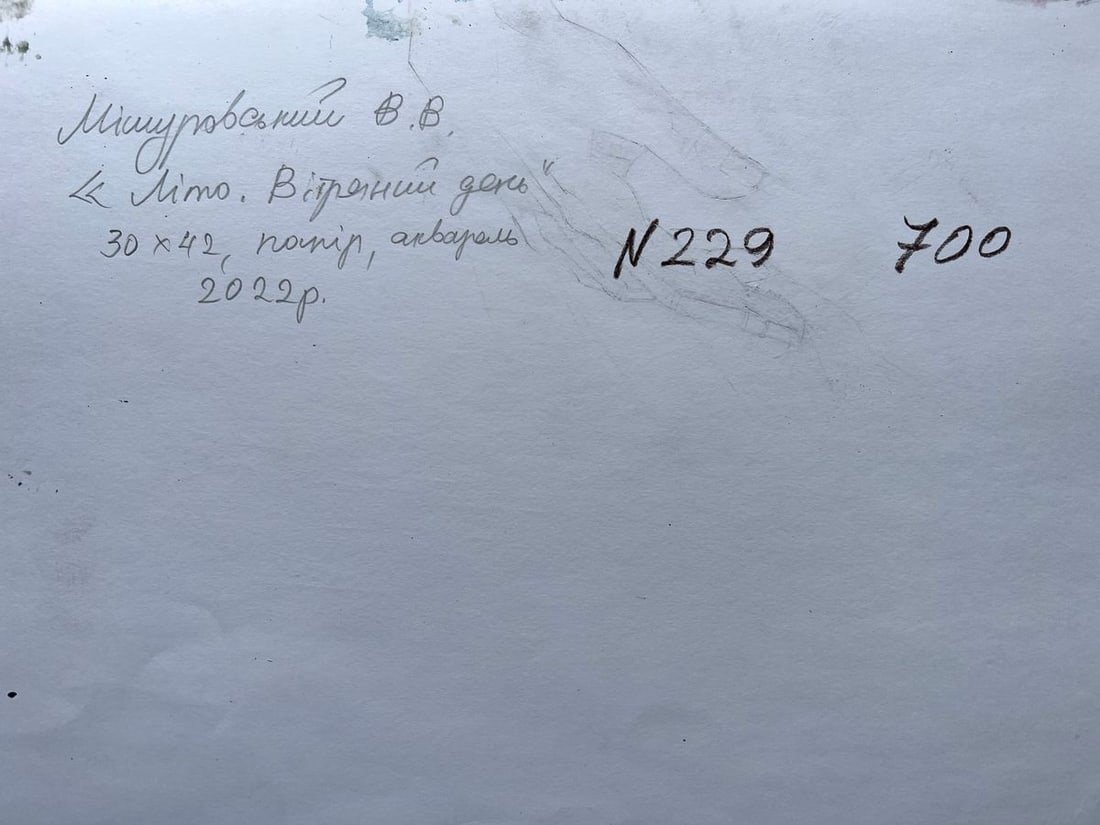 Мішуровський В.В.
« Літо. Вітряний день"
30 x 42, папір, акварель
2022р.
N 229
700